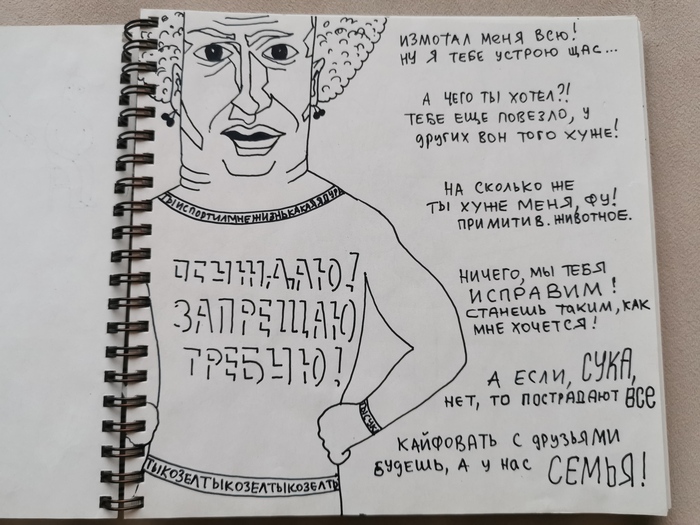 ИЗМОТАЛ МЕНЯ ВСЮ!
НУ Я ТЕБЕ УСТРОЮ ЩАС...
А ЧЕГО ТЫ ХОТЕЛ?!
ТЕБЕ ЕЩЕ ПОВЕЗЛО, У
ДРУГИХ ВОН ТОГО ХУЖЕ!
НА СКОЛЬКО ЖЕ
ТЫ ХУЖЕ МЕНЯ, ФУ!
ПРИМИТИВ. ЖИВОТНОЕ.
ТЫИСПОРТИЛМНЕЖИЗНЬКАКАЯЯДУРА
ОСУЖДАЮ!
ЗАПРЕЩАЮ
ТРЕБУЮ!
НИЧЕГО, МЫ ТЕБЯ
ИСПРАВИМ!
СТАНЕШЬ ТАКИМ, КАК
МНЕ ХОЧЕТСЯ!
А ЕСЛИ, СУКА,
НЕТ, ТО ПОСТРАДАЮТ ВСЕ
КАЙФОВАТЬ С ДРУЗЬЯМИ
БУДЕШЬ, А У НАС СЕМЬЯ!
ТЫКОЗЕЛТЫКОЗЕЛТЫКОЗЕЛТЬ